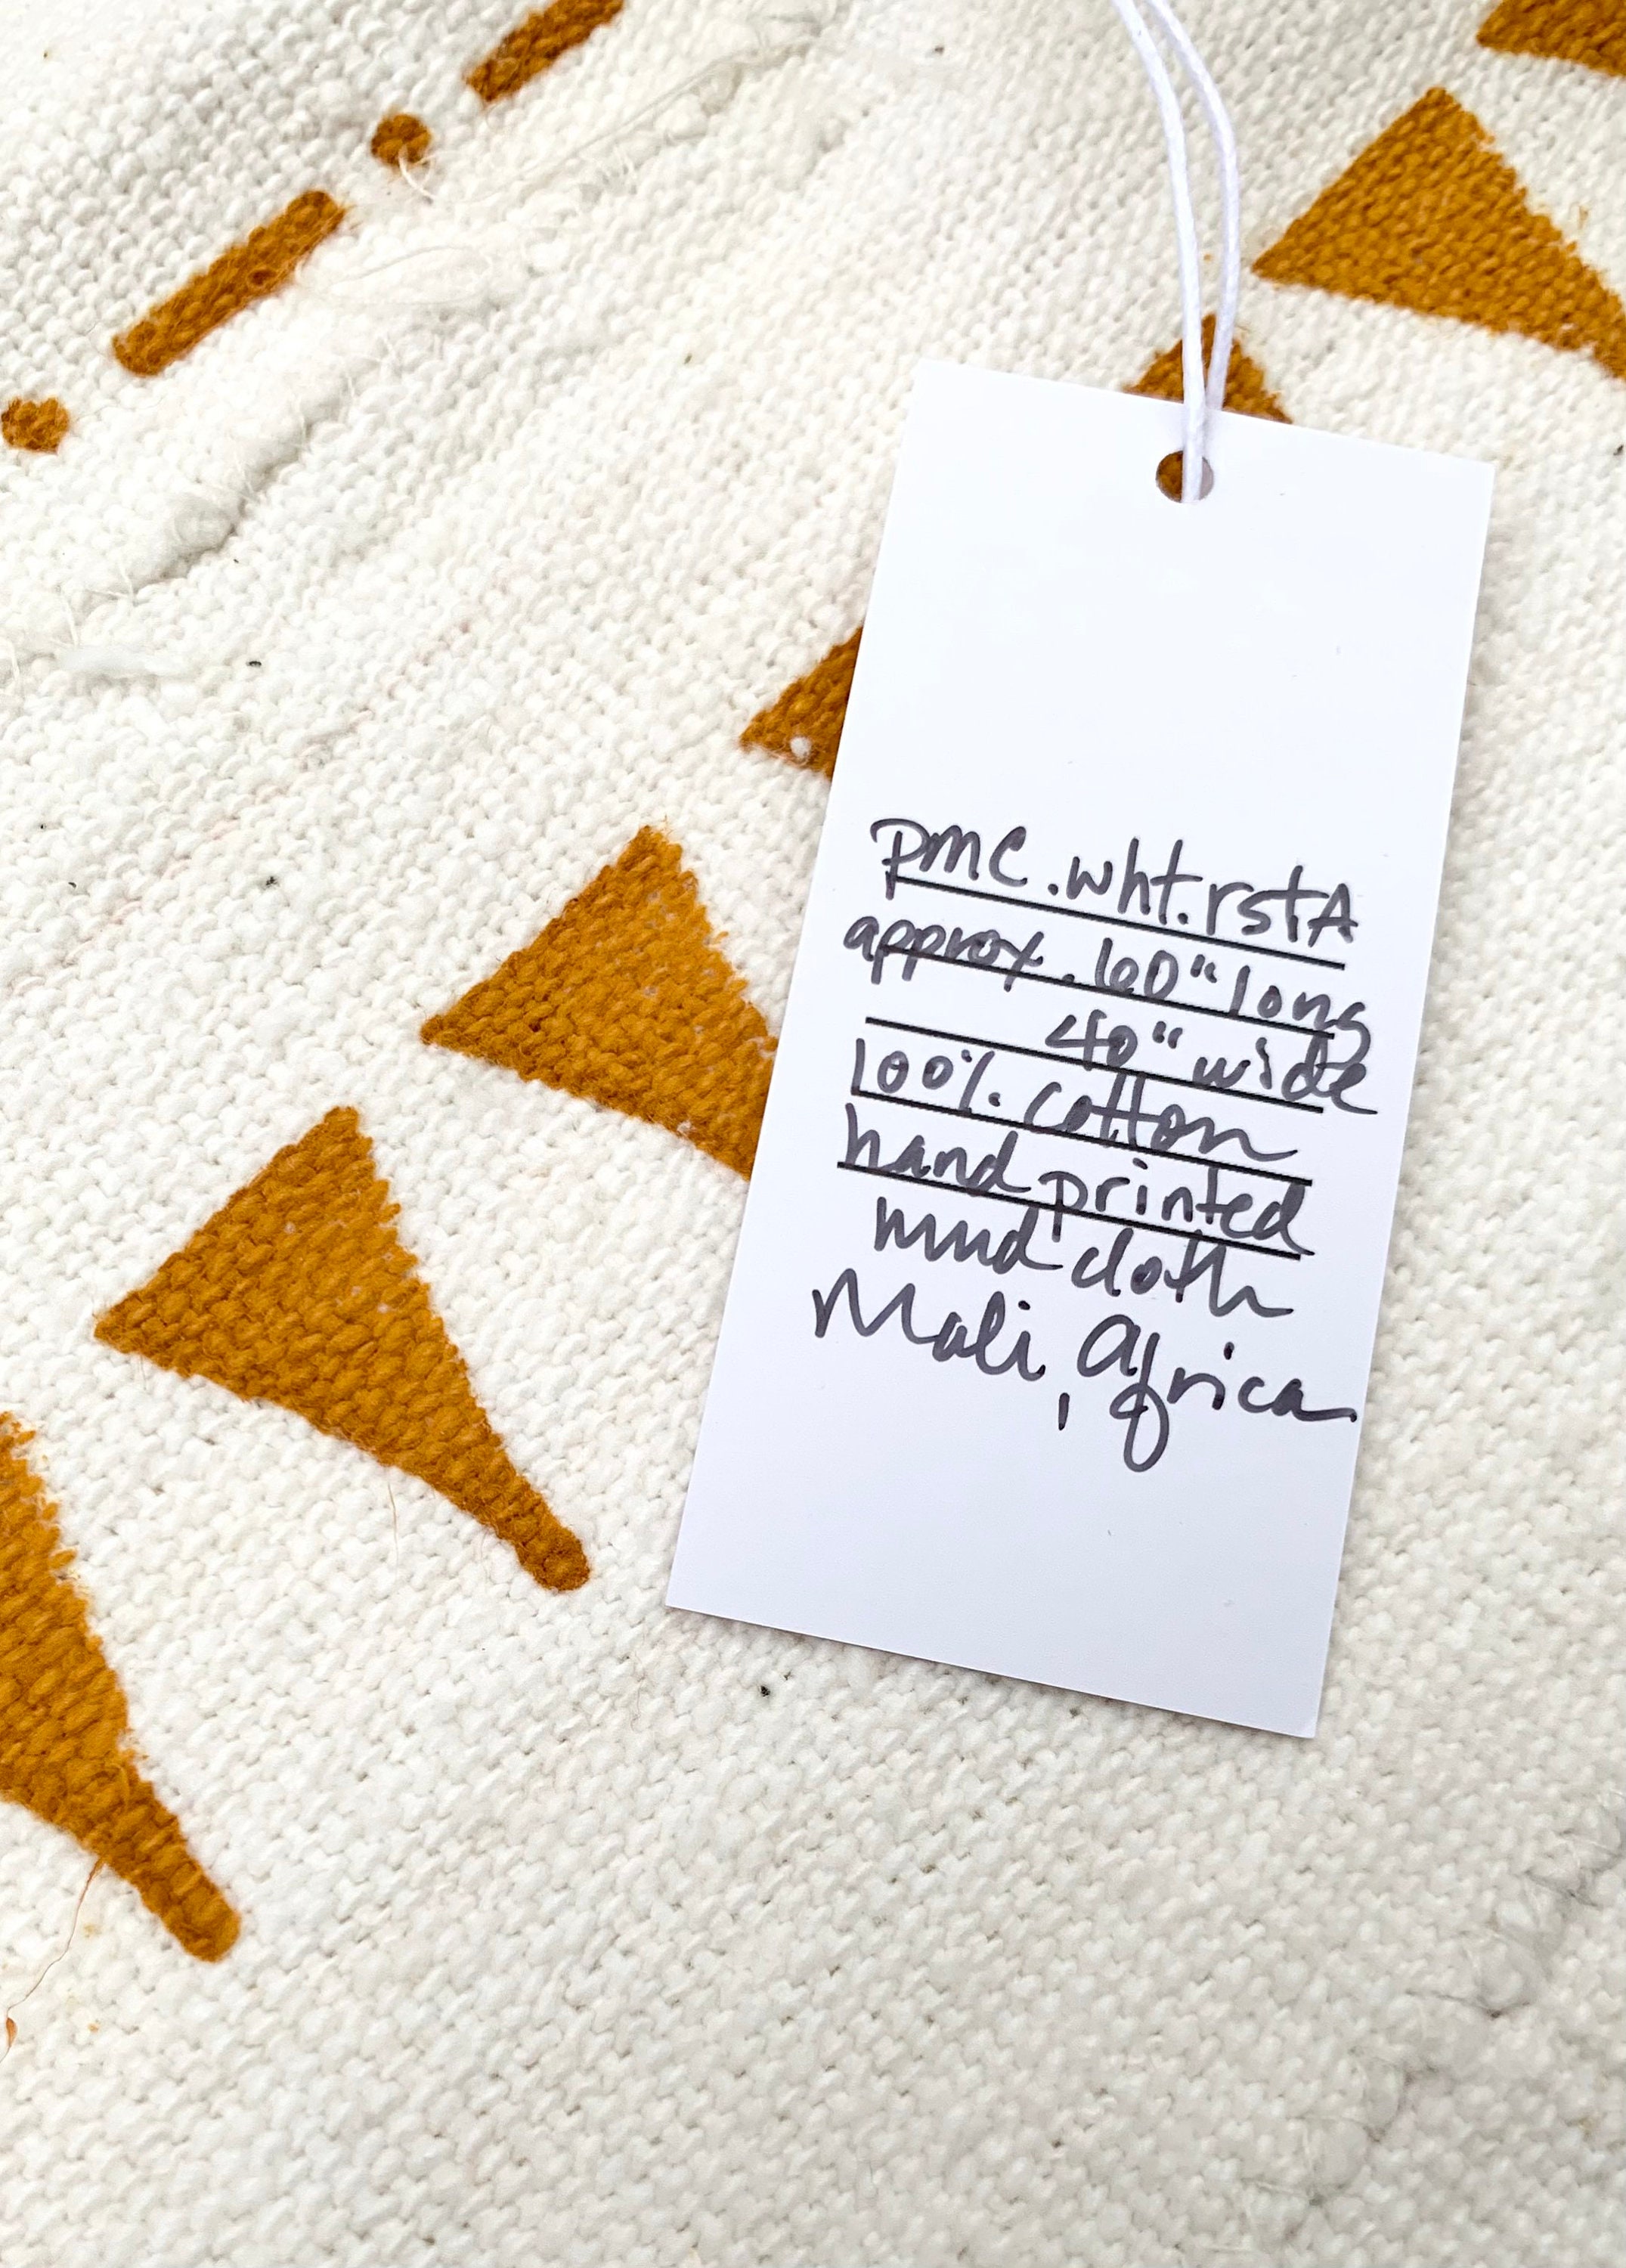 pmc.wht.rstA
approx. 60" long
40" wide
100% cotton
hand printed
mud cloth
Mali, Africa